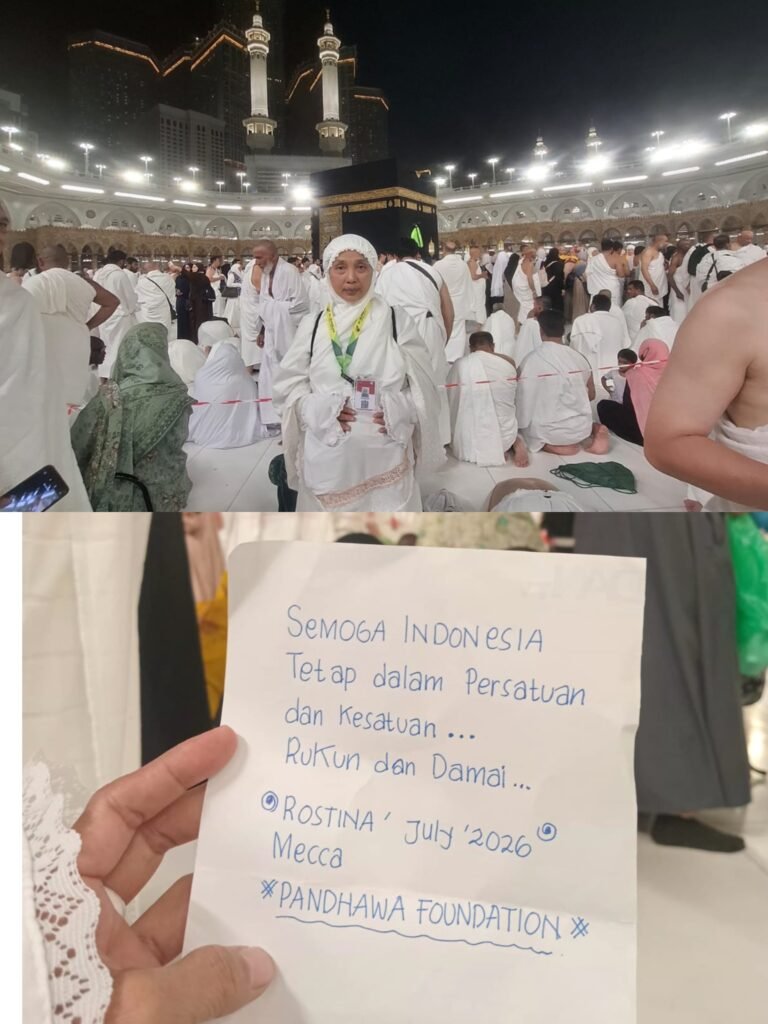 SEMOGA INDONESIA
Tetap dalam Persatuan
dan Kesatuan...
Rukun dan Damai...
ROSTINA' July '2026
Mecca
PANDHAWA FOUNDATION